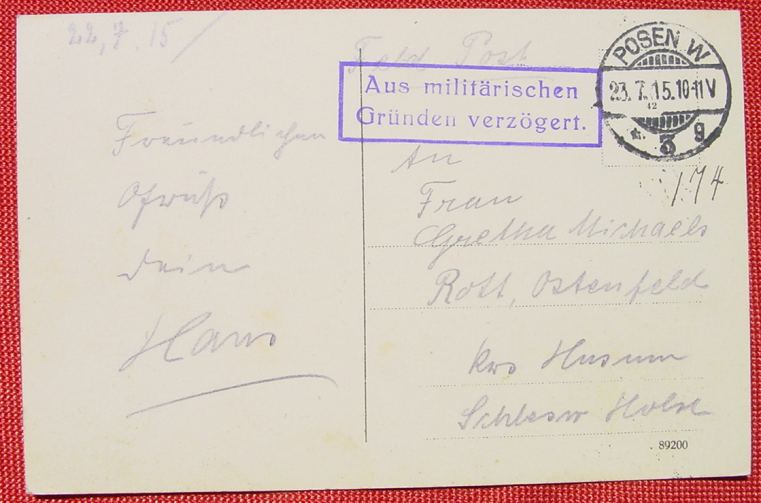 22.7.15
Feld Post
Aus militärischen
Gründen verzögert.
POSEN W
23.7.15.10-11V
* 3 g
174
Freundlichen
Gruß
Dein
Hans
An
Frau
Gretha Michaels
Rott, Ostenfeld
Krs Husum
Schlesw Holst
89200